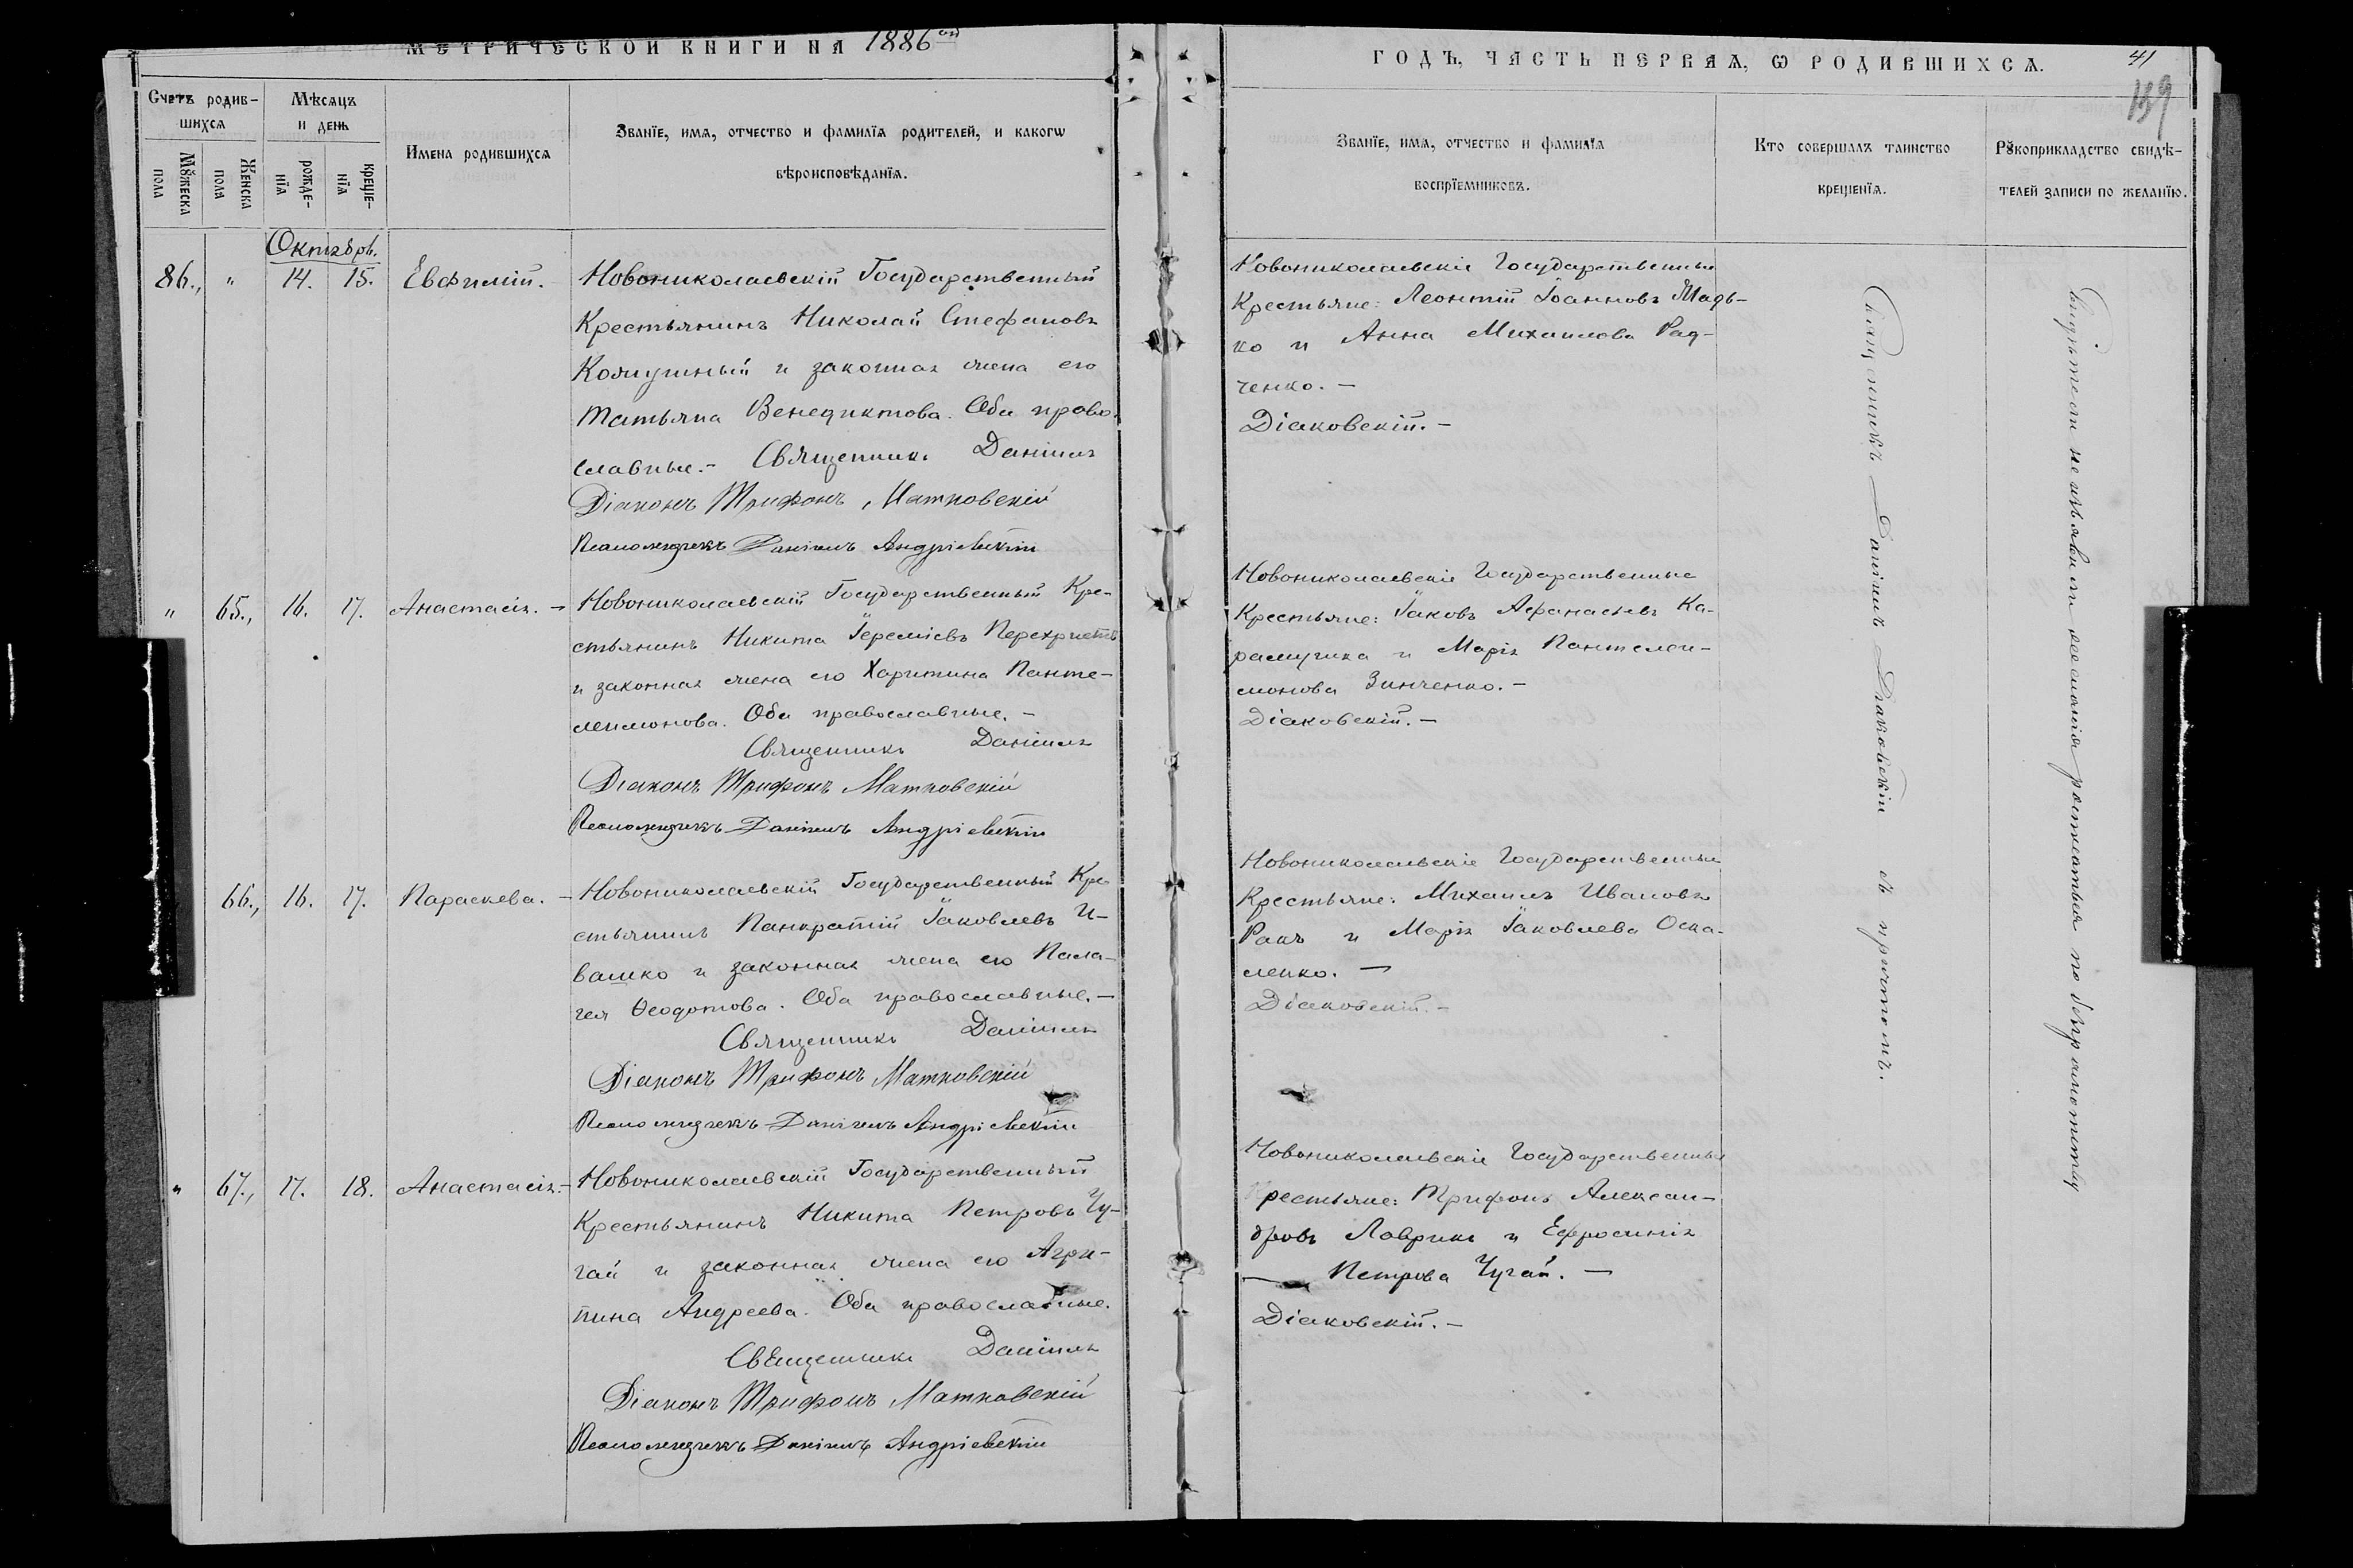 МЕТРИЧЕСКОЙ КНИГИ НА 1886 ой
ГОДЪ, ЧАСТЬ ПЕРВАЯ, Ѡ РОДИВШИХСѦ.
41
139
Счетъ родив-
шихсѧ
Мѣсѧцъ
и день
Имена родившихсѧ
Званїе, имѧ, отчество и фамилїѧ родителей, и какогѡ
вѣроисповѣданїѧ.
Мꙋжеска
пола
Женска
пола
рожде-
нїѧ
креще-
нїѧ
Званїе, имѧ, отчество и фамилїѧ
воспрїемниковъ.
Кто совершалъ таинство
крещенїѧ.
Рꙋкоприкладство свидѣ-
телей записи по желанїю.
Октябрь.
86., " 14. 15. Евфимій. Новониколаевскій Государственный
Крестьянинъ Николай Стефановъ
Кожушный и законная жена его
Татьяна Венедиктова. Оба право-
славные.- Священникъ Даніилъ
Діаконъ Трифонъ Матковскій
Псаломщикъ Даніилъ Андріевскій
Новониколаевскіе Государственные
Крестьяне: Леонтій Іоанновъ Мадь-
ко и Анна Михаилова Рад-
ченко. -
Діаковскій. -
" 65., 16. 17. Анастасія. - Новониколаевскій Государственный Кре-
стьянинъ Никита Іереміевъ Перехристъ
и законная жена его Харитина Панте-
леимонова. Оба православные. -
Священникъ Даніилъ
Діаконъ Трифонъ Матковскій
Псаломщикъ Даніилъ Андріевскій
Новониколаевскіе Государственные
Крестьяне: Іаковъ Афанасьевъ Ка-
рамушка и Марія Пантелеи-
монова Зинченко. -
Діаковскій. -
66., 16. 17. Параскева. - Новониколаевскій Государственный Кре-
стьянинъ Панкратій Іаковлевъ И-
вашко и законная жена его Пела-
гея Ѳеодотова. Оба православные. -
Священникъ Даніилъ
Діаконъ Трифонъ Матковскій
Псаломщикъ Даніилъ Андріевскій
Новониколаевскіе Государственные
Крестьяне: Михаилъ Ивановъ
Ракъ и Марія Іаковлева Оска-
ленко. -
Діаковскій. -
" 67., 17. 18. Анастасія. - Новониколаевскій Государственный
Крестьянинъ Никита Петровъ Чу-
гай и законная жена его Агри-
пина Андреева. Оба православные.
Священникъ Даніилъ
Діаконъ Трифонъ Матковскій
Псаломщикъ Даніилъ Андріевскій
Новониколаевскіе Государственные
Крестьяне: Трифонъ Алексан-
дровъ Лаврикъ и Ефросинія
Петрова Чугай. -
Діаковскій. -
Священникъ Даніилъ Діаковскій съ причтомъ.
Свидѣтели не изъявили желанія росписаться по безграмотству